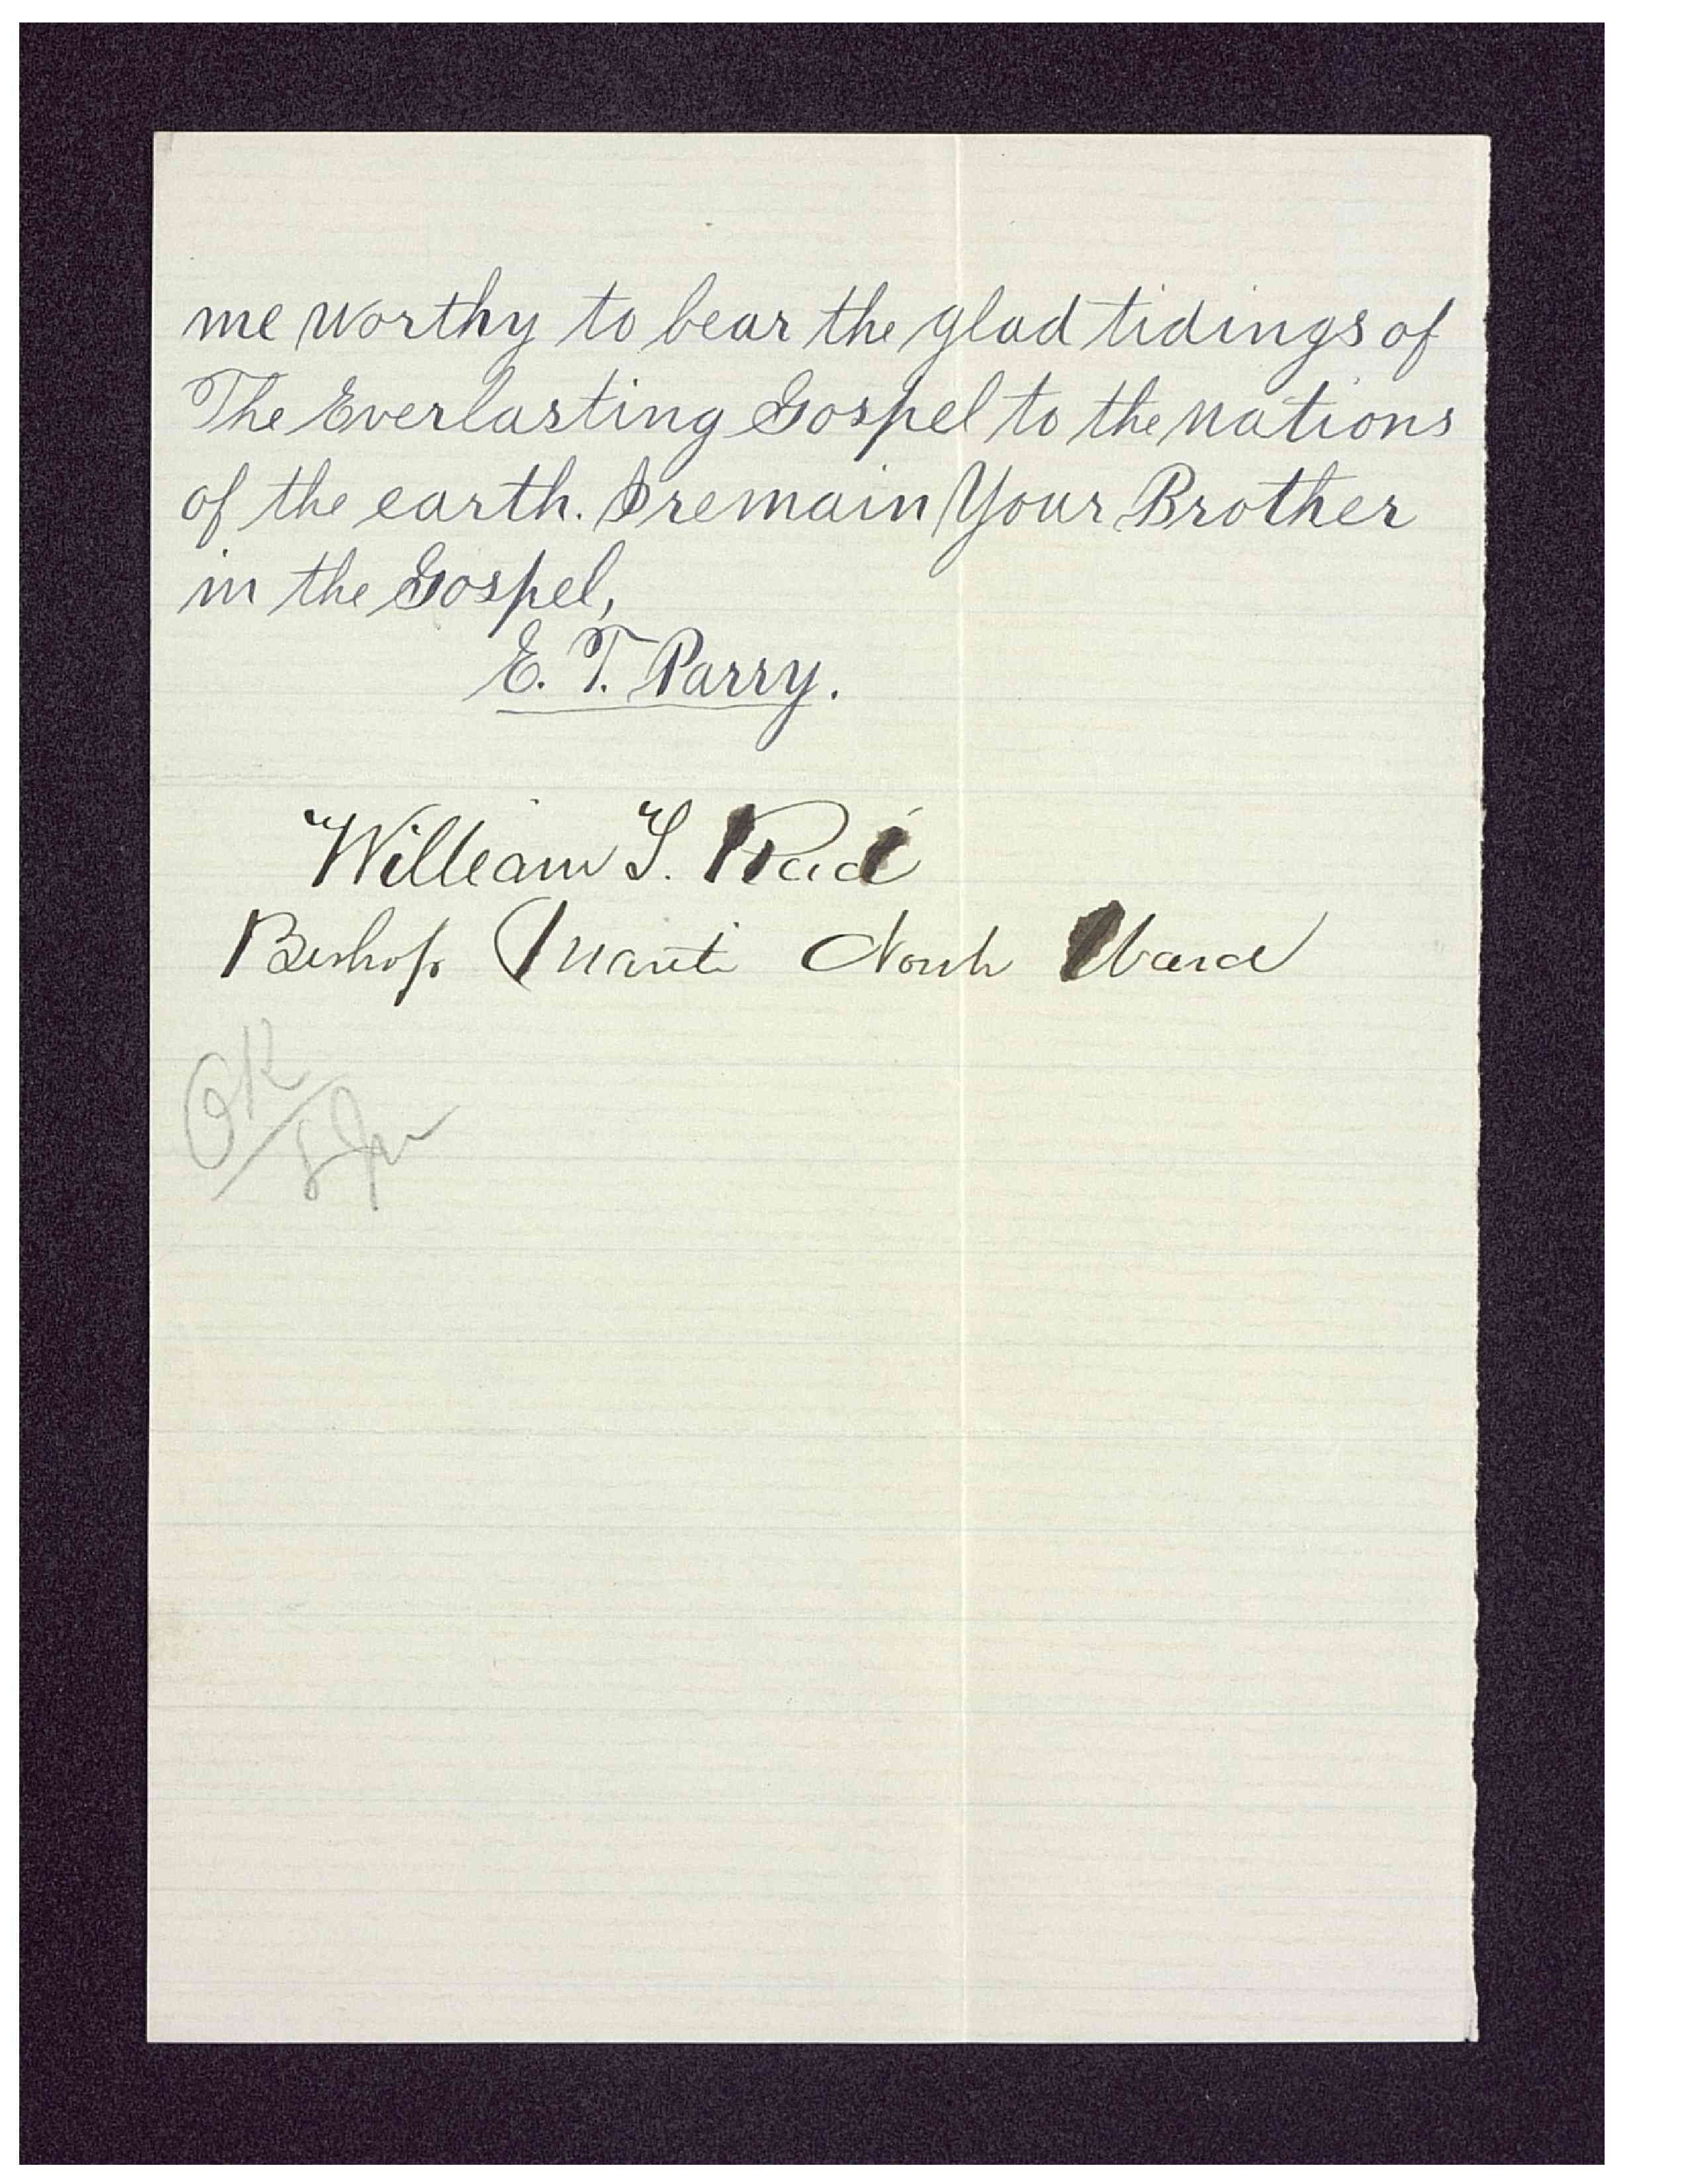 me worthy to bear the glad tidings of
The Everlasting Gospel to the nations
of the earth. I remain Your Brother
in the Gospel,
E. T. Parry.
William T. Reid
Bishop Manti North Ward
OK